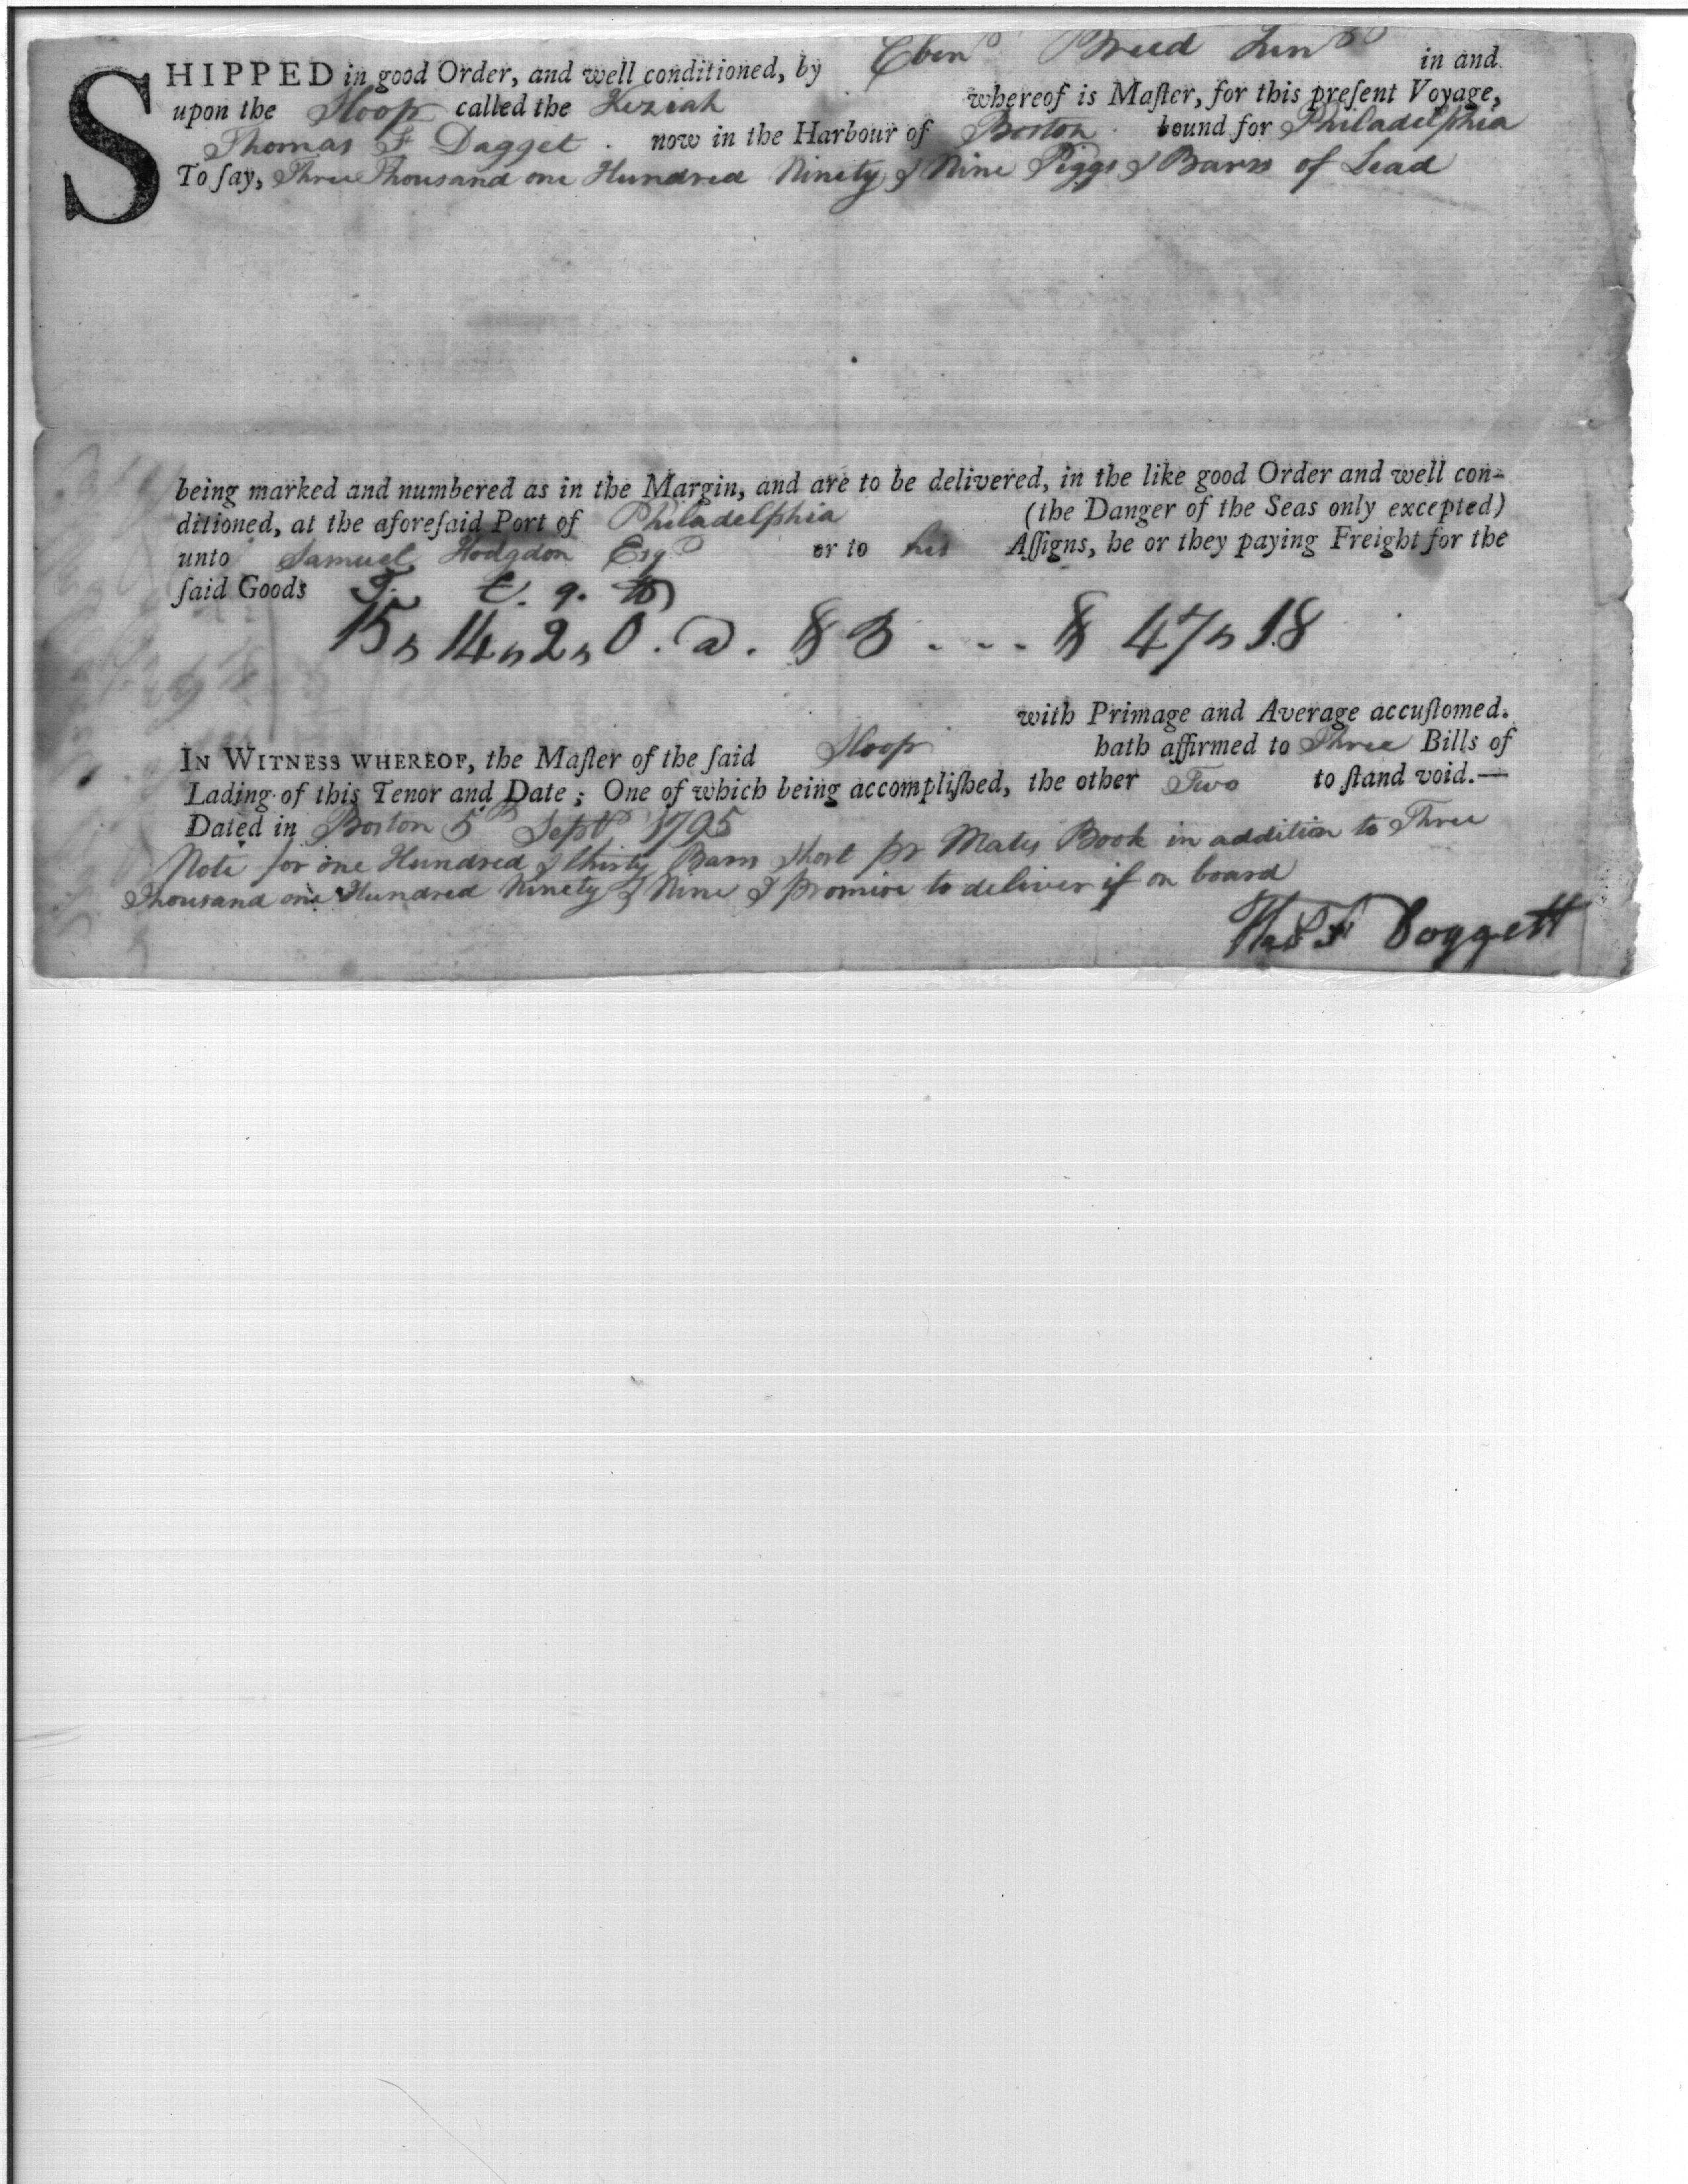 SHIPPED in good Order, and well conditioned, by Eben^r Breed Jun^r in and
upon the Sloop called the Keziah whereof is Maſter, for this preſent Voyage,
Thomas F Dagget . now in the Harbour of Boston bound for Philadelphia
To ſay, Three Thousand one Hundred Ninety & Nine Piggs & Barrs of Lead
being marked and numbered as in the Margin, and are to be delivered, in the like good Order and well con-
ditioned, at the aforeſaid Port of Philadelphia (the Danger of the Seas only excepted)
unto Samuel Hodgdon Esq^r or to his Aſſigns, he or they paying Freight for the
ſaid Goods T. C. q. lb
15,, 14,, 2,, 0 . @ . $ 3 . - - . $ 47,, 18
with Primage and Average accuſtomed.
IN WITNESS WHEREOF, the Maſter of the ſaid Sloop hath affirmed to Three Bills of
Lading of this Tenor and Date ; One of which being accompliſhed, the other Two to ſtand void.—
Dated in Boston 5^th Sept^r 1795
Note for one Hundred & thirty Barrs short pr Mates Book in addition to Three
Thousand one Hundred Ninety & Nine I promise to deliver if on board
Tho^s F Doggett